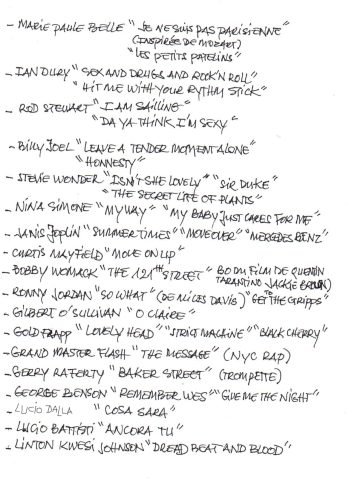 - MARIE PAULE BELLE "JE NE SUIS PAS PARISIENNE"
(INSPIRÉE DE MOZART)
"LES PETITS PATELINS"
- IAN DURY "SEX AND DRUGS AND ROCK'N ROLL"
"HIT ME WITH YOUR RYTHM STICK"
- ROD STEWART "I AM SAILLING"
"DA YA THINK I'M SEXY"
- BILLY JOEL "LEAVE A TENDER MOMENT ALONE"
"HONNESTY"
- STEVIE WONDER "ISN'T SHE LOVELY" "SIR DUKE"
"THE SECRET LIFE OF PLANTS"
- NINA SIMONE "MY WAY" "MY BABY JUST CARES FOR ME"
- JANIS JOPLIN "SUMMERTIMES" "MOVEOVER" "MERCEDES BENZ"
- CURTIS MAYFIELD "MOVE ON UP"
- BOBBY WOMACK "THE 121TH STREET" BO DU FILM DE QUENTIN
TARANTINO JACKIE BROWN)
- RONNY JORDAN "SO WHAT" (DE MILES DAVIS) "GET TO GRIPPS"
- GILBERT O'SULLIVAN "O CLAIRE"
- GOLDFRAPP "LOVELY HEAD" "STRICT MACHINE" "BLACK CHERRY"
- GRAND MASTER FLASH "THE MESSAGE" (NYC RAP)
- GERRY RAFERTY "BAKER STREET" (TROMPETTE)
- GEORGE BENSON "REMEMBER WES" "GIVE ME THE NIGHT"
- LUCIO DALLA "COSA SARA"
- LUCIO BATTISTI "ANCORA TU"
- LINTON KWESI JOHNSON "DREAD BEAT AND BLOOD"